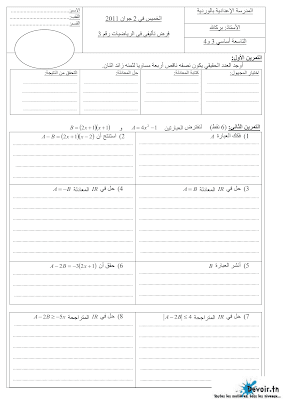 المدرسة الإعدادية بالوردية
الخميس في 2 جوان 2011
فرض تأليفي في الرياضيات رقم 3
التاسعة أساسي 3 و 4
الأستاذ
التمرين الأول:
أوجد العدد الحقيقي يكون نصفه ناقص أربعة مساويا لثلثه زائد اثنان.
اختيار المجهول:
كتابة المعادلة:
حل المعادلة:
التحقق من النتيجة:
التمرين الثاني: (6 نقط) لتعترض العبارتين A=4x²−1 و B=(2x+1)(x+1)
1) فكك العبارة A
2) استنتج أن A−B=(2x+1)(x−2)
3) حل في IR المعادلة A=B
4) حل في IR المعادلة A=−B
5) أنشر العبارة B
6) تحقق أن A−2B=−3(2x+1)
7) حل في IR المتراجحة |A−2B|≤4
8) حل في IR المتراجحة A−2B≥−5x
Devoir.tn
Toutes les matières, tous les niveaux...